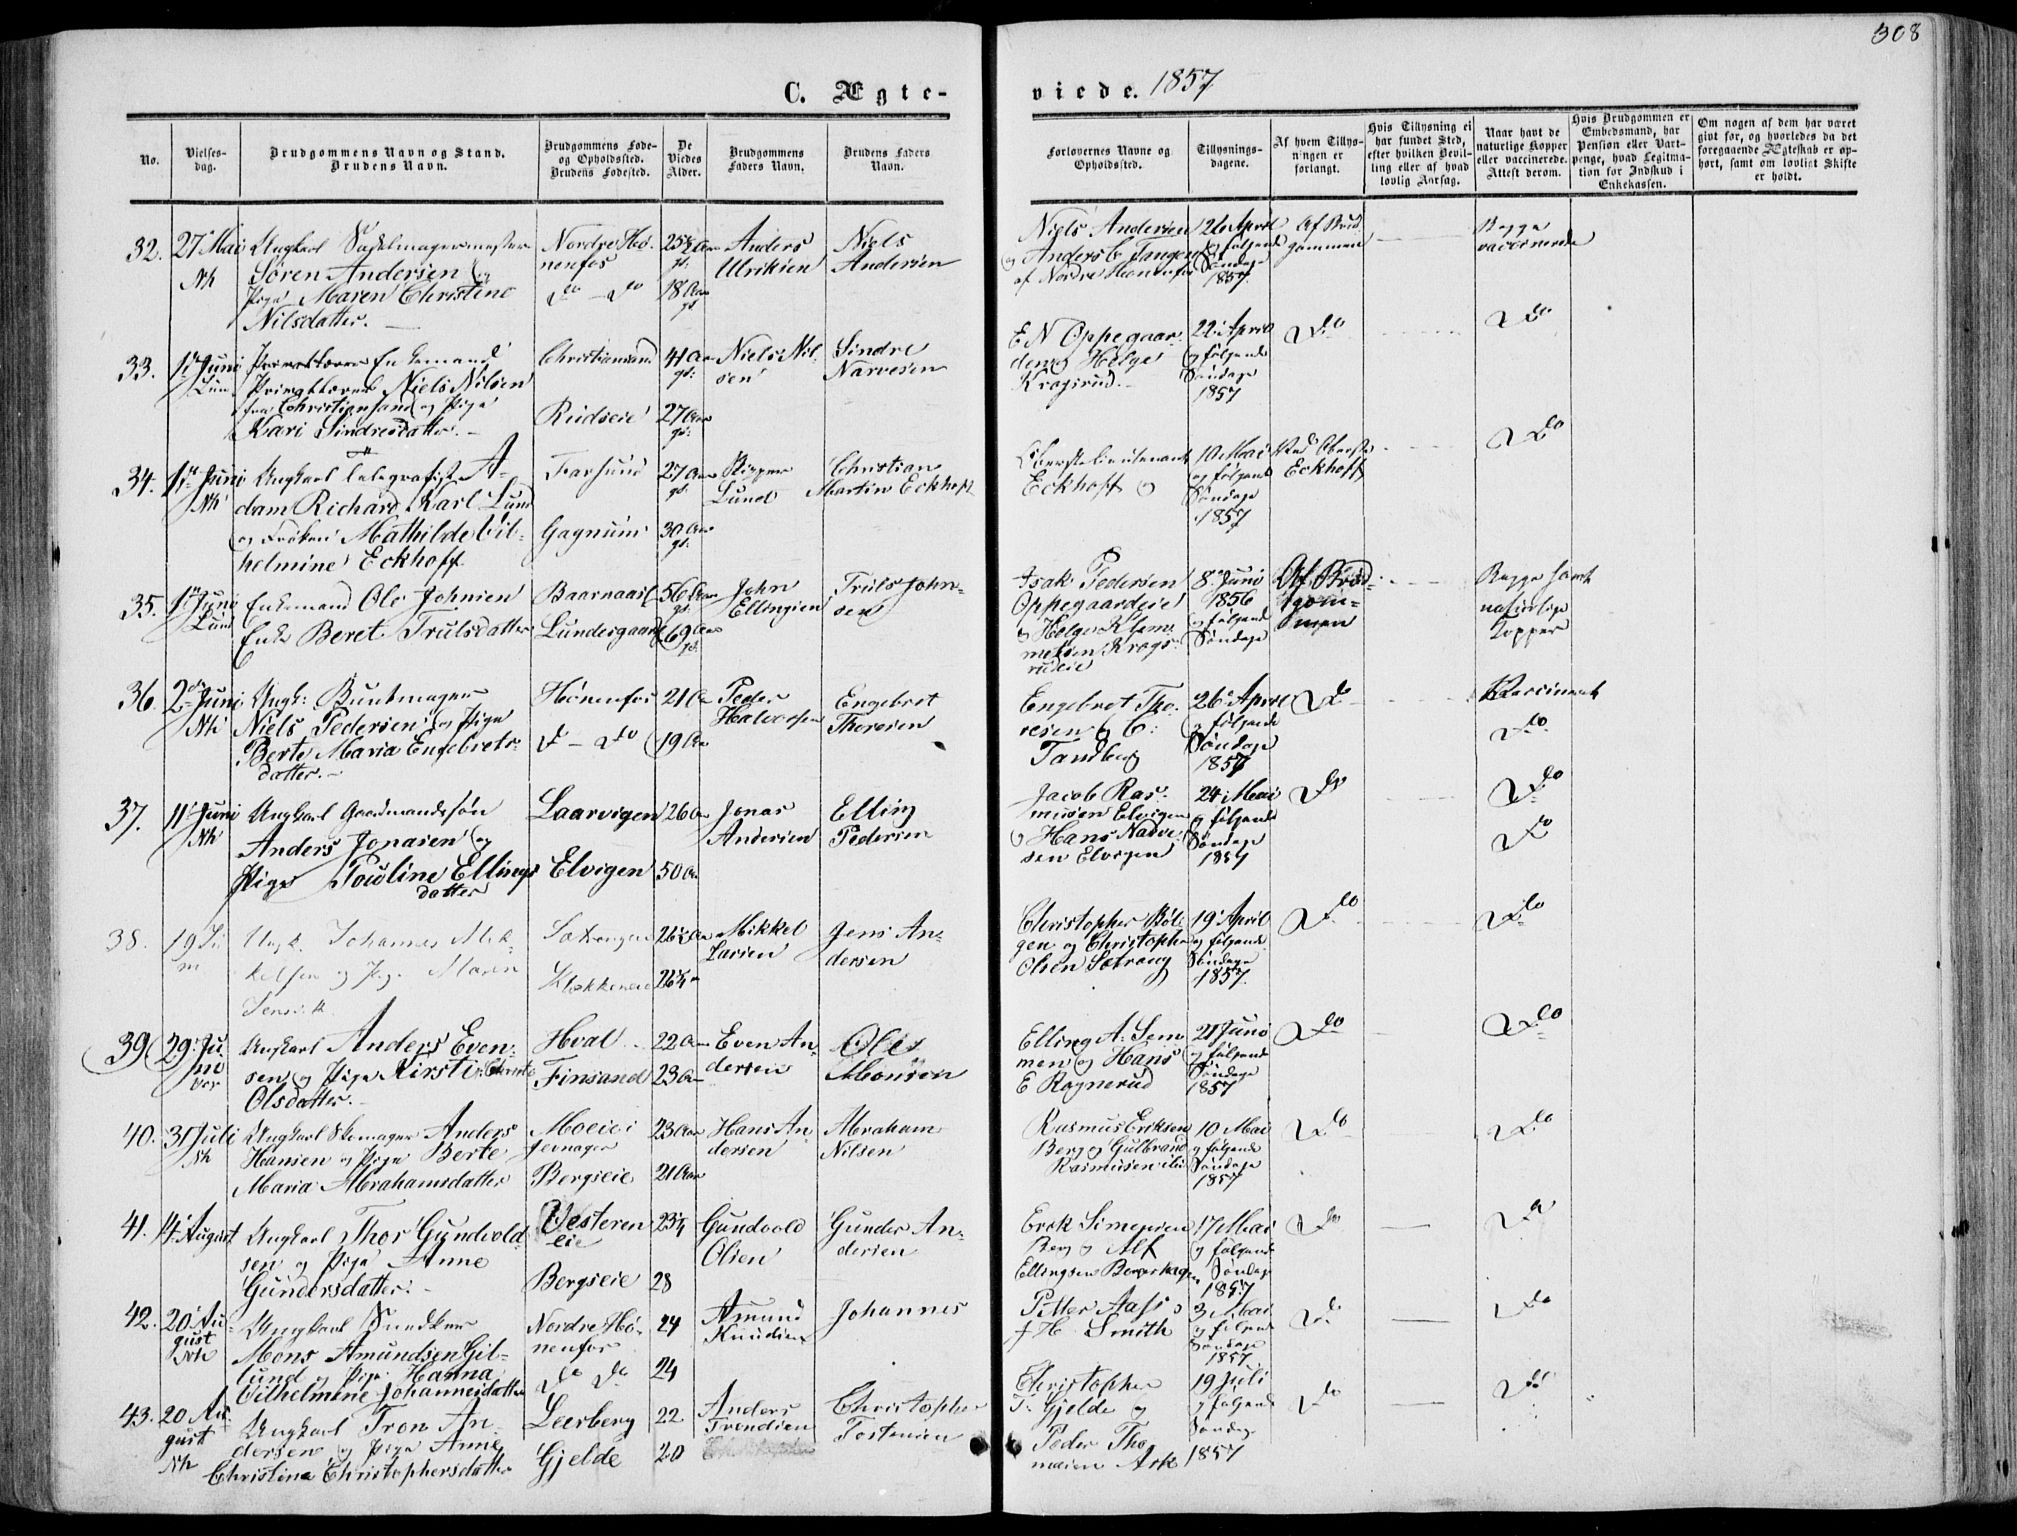 308
C. Ægte-
viede. 1857
No.
Vielses-
dag.
Brudgommens Navn og Stand.
Brudens Navn.
Brudgommens Føde-
og Opholdssted.
Brudens Fødested.
De
Viedes
Alder.
Brudgommens
Faders Navn.
Brudens Faders
Navn.
Forlovernes Navne og
Opholdssted.
Tillysnings-
dagene.
Af hvem Tillys-
ningen er
forlangt.
Hvis Tillysning ei
har fundet Sted,
efter hvilken Bevil-
ling eller af hvad
lovlig Aarsag.
Naar havt de
naturlige Kopper
eller vaccinerede.
Attest derom.
Hvis Brudgommen er
Embedsmand, har
Pension eller Vart-
penge, hvad Legitma-
tion for Indskud i
Enkekassen.
Om nogen af dem har været
gift før, og hvorledes da det
foregaaende Ægteskab er op-
hørt, samt om lovligt Skifte
er holdt.
32. 27 Mai
Nh
Ungkarl Sadelmagermester
Søren Andersen og
Pige Maren Christine
Nilsdatter.
Nordre Høe-
nenfos
Do - Do
25½ Aar
gl:
18 Aar
gl
Anders
Ulriksen
Niels
Andersen
Niels Andersen
og Anders C Tangen
af Nordre Hønenfos
26 April
og følgende
Søndage
1857.
Af Brud-
gommen
Begge
vaccinerede
33. 1 Juni
Lun
Enkemand
Privatlærer Niels Nilsen
fra Christiansand og Pige
Kari Sindresdatter.
Christiansand
Rudseie
41 Aar
gl:
27 Aar
gl:
Niels Nil-
sen
Sindre
Narvesen
E N Oppegaar-
den og Helge
Kragsrud.
22 April
og følgende
Søndage
1857
Do
Do
34. 1 Juni
Nh
Ungkarl Telegrafist A-
dam Richard Karl Lund
og Frøken Mathilde Vil-
helmine Eckhoff
Farsund
Gagnum
27 Aar
gl:
30 Aar
gl:
Skipper
Lund
Christian
Martin Eckhoff
Oberstlieutenant
Eckhoff og
10 Mai
og følgende
Søndage
1857
Ved Oberstl
Eckhoff
Do
35. 1 Juni
Lund
Enkemand Ole Johnsen
Enke Beret Trulsdatter
Baarnaas
Lundesgaard
56 Aar
gl:
69 Aar
gl:
John
Ellingsen
Truls John-
sen
Isak Pedersen
Oppegaardeie
og Helge Klem-
metsen Krags-
rudeie
8 Juni
1856
og følgende
Søndage
Af Brud-
gom-
men
Begge havt
naturlige
Kopper
36. 2 Juni
Nh
Ungk: Buntmager
Niels Pedersen og Pige
Berte Maria Engebrets-
datter.
Hønenfos
Do - Do
21 Aa
19 Aa
Peder
Halvorsen
Engebret
Thoresen
Engebret Tho-
resen og C:
Tandberg
26 April
og følgende
Søndage
1857
Do
Vaccineret
Do
37. 11 Juni
Nh
Ungkarl Gaardmandssøn
Anders Jonasen og
Pige Pouline Ellings
datter
Laarvigen
Elvigen
26 Aa
50 Aa
Jonas
Andersen
Elling
Pedersen
Jacob Ras-
mussen Elvigen
og Hans Narve-
sen Elvigen
24 Mai
og følgende
Søndage
1857
Do
Do
Do
38. 19 Ju
ni
Ungk. Johannes Mik-
kelsen og Pige Maren
Jensd.
Sætrangen
Klækkeneie
26½ Aa
26¼
Mikkel
Larsen
Jens An-
dersen
Christopher Bøl-
gen og Christopher
Olsen Sætrang
19 April
og følgende
Søndage
1857.
Do
Do
39 29 Ju
ni
Ungkarl Anders Even-
sen og Pige Kirsti
Olsdatter.
Hval
Finsand
22 Aa
23 Aa
Even An-
dersen
Ole
Monsen
Elling A. Sem-
men og Hans
E Ragnerud
21 Juni
og følgende
Søndage
1857
Do
Do
40. 31 Juli
Nh
Ungkarl Skomager Anders
Hansen og Pige Berte
Maria Abrahamsdatter
Moeie i
Jevnager
Bergseie
23 Aar
21 Aar
Hans An-
dersen
Abraham
Nilsen
Rasmus Eriksen
Berg og Gulbrand
Rasmussen
10 Mai
og følgende
Søndage
1857
Do
Do
41. 14 August
Ungkarl Thor Gundvold-
sen og Pige Anne
Gundersdatter.
Vesteren
eie
Bergseie
23¼
28
Gundvold
Olsen
Gunder An-
dersen
Erek Simensen
Berg og Alf
Ellingsen
17 Mai
og følgende
Søndage
1857
Do
Do
42. 20 Au-
gust
Nh
Ungkarl
Mons Amundsen Gil-
lund og Pige Hanna
Vilhelmine Johannesdatter
Nordre Hø-
nenfos
Do Do
24
24
Amund
Knudsen
Johannes
Petter Aass
H Smith
3 Mai
og følgende
Søndage
1857
Do
Do
43. 20 Au
gust
Nh
Ungkarl Tron An-
dersen og Pige Anne
Christine Christophersdatter
Leerberg
Gjelde
22
20
Anders
Trondsen
Christopher
Tostensen
Christopher
T. Gjelde og
Peder Tho-
mesen Ask
19 Juli
og følgende
Søndage
1857
Do
Do